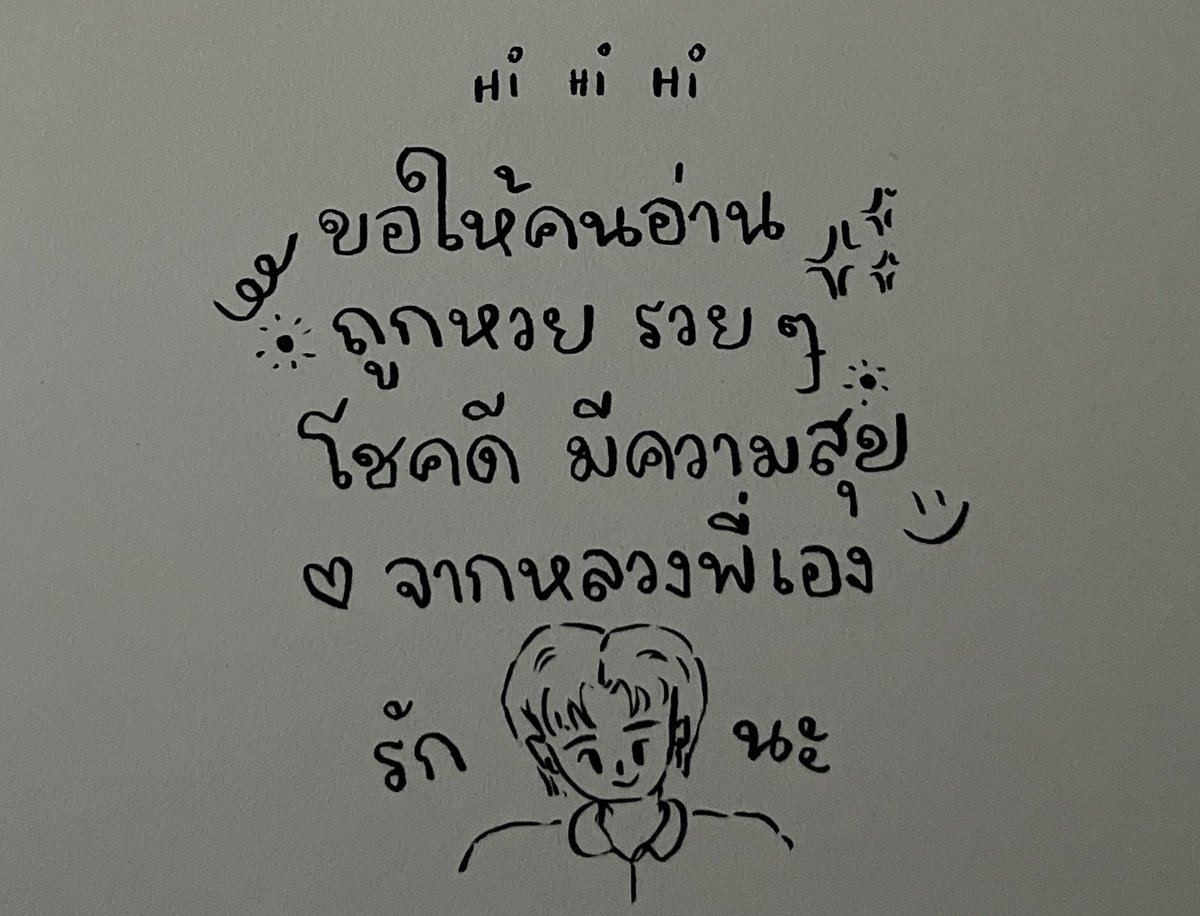 Hi Hi Hi
ขอให้คนอ่าน
ถูกหวย รวยๆ
โชคดี มีความสุข
จากหลวงพี่เอง
รัก นะ